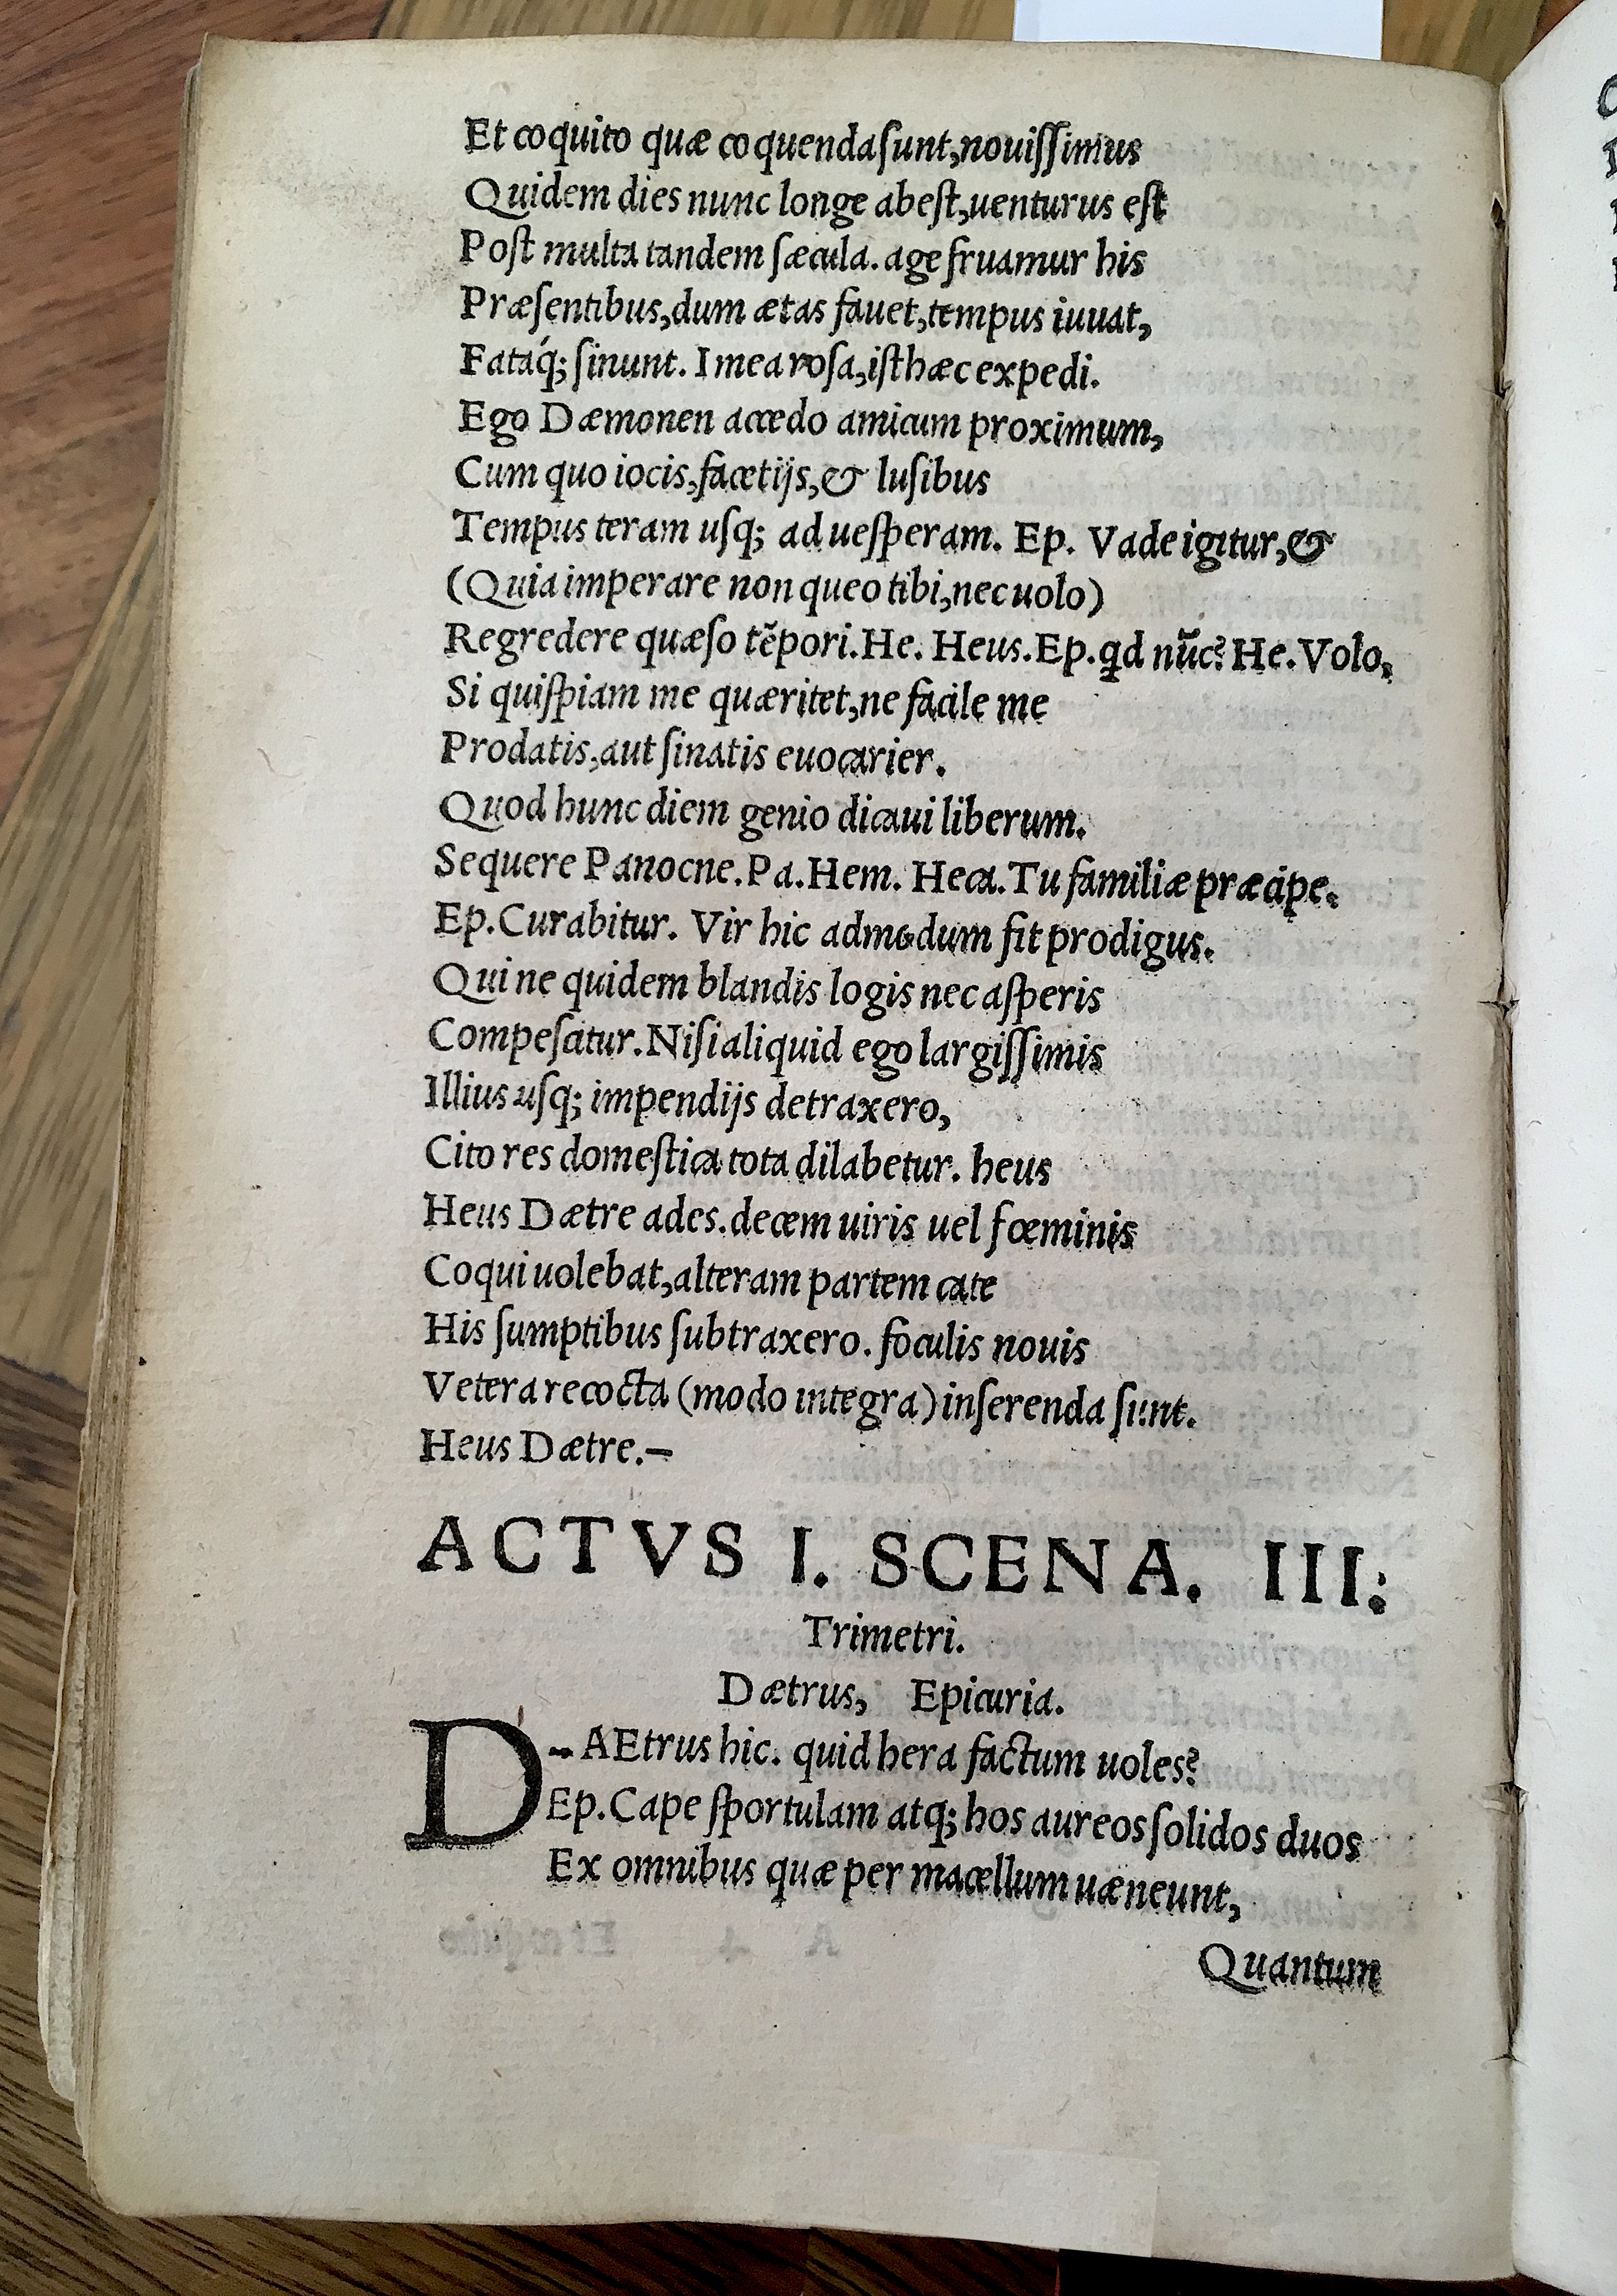 Et coquito quæ coquenda ſunt, nouiſſimus
Quidem dies nunc longe abeſt, uenturus eſt
Poſt multa tandem ſæcula. age fruamur his
Præſentibus, dum ætas fauet, tempus iuuat,
Fatáq; ſinunt. I mea roſa, iſthæc expedi.
Ego Dæmonen accedo amicum proximum,
Cum quo iocis, facetijs, & luſibus
Tempus teram uſq; ad ueſperam. Ep. Vade igitur, &
(Quia imperare non queo tibi, nec uolo)
Regredere quæſo tẽpori. He. Heus. Ep. qd nũc? He. Volo,
Si quiſpiam me quæritet, ne facile me
Prodatis, aut ſinatis euocarier.
Quod hunc diem genio dicaui liberum.
Sequere Panocne. Pa. Hem. Heca. Tu familiæ præcipe.
Ep. Curabitur. Vir hic admodum fit prodigus.
Qui ne quidem blandis logis nec aſperis
Compeſcitur. Niſi aliquid ego largiſſimis
Illius uſq; impendijs detraxero,
Cito res domeſtica tota dilabetur. heus
Heus Dætre ades. decem uiris uel fœminis
Coqui uolebat, alteram partem cate
His ſumptibus ſubtraxero. foculis nouis
Vetera recocta (modo integra) inſerenda ſunt.
Heus Dætre.—
ACTVS I. SCENA. III:
Trimetri.
Dætrus, Epicuria.
D-AEtrus hic. quid hera factum uoles?
Ep. Cape ſportulam atq; hos aureos ſolidos duos
Ex omnibus quæ per macellum uæneunt,
Quantum